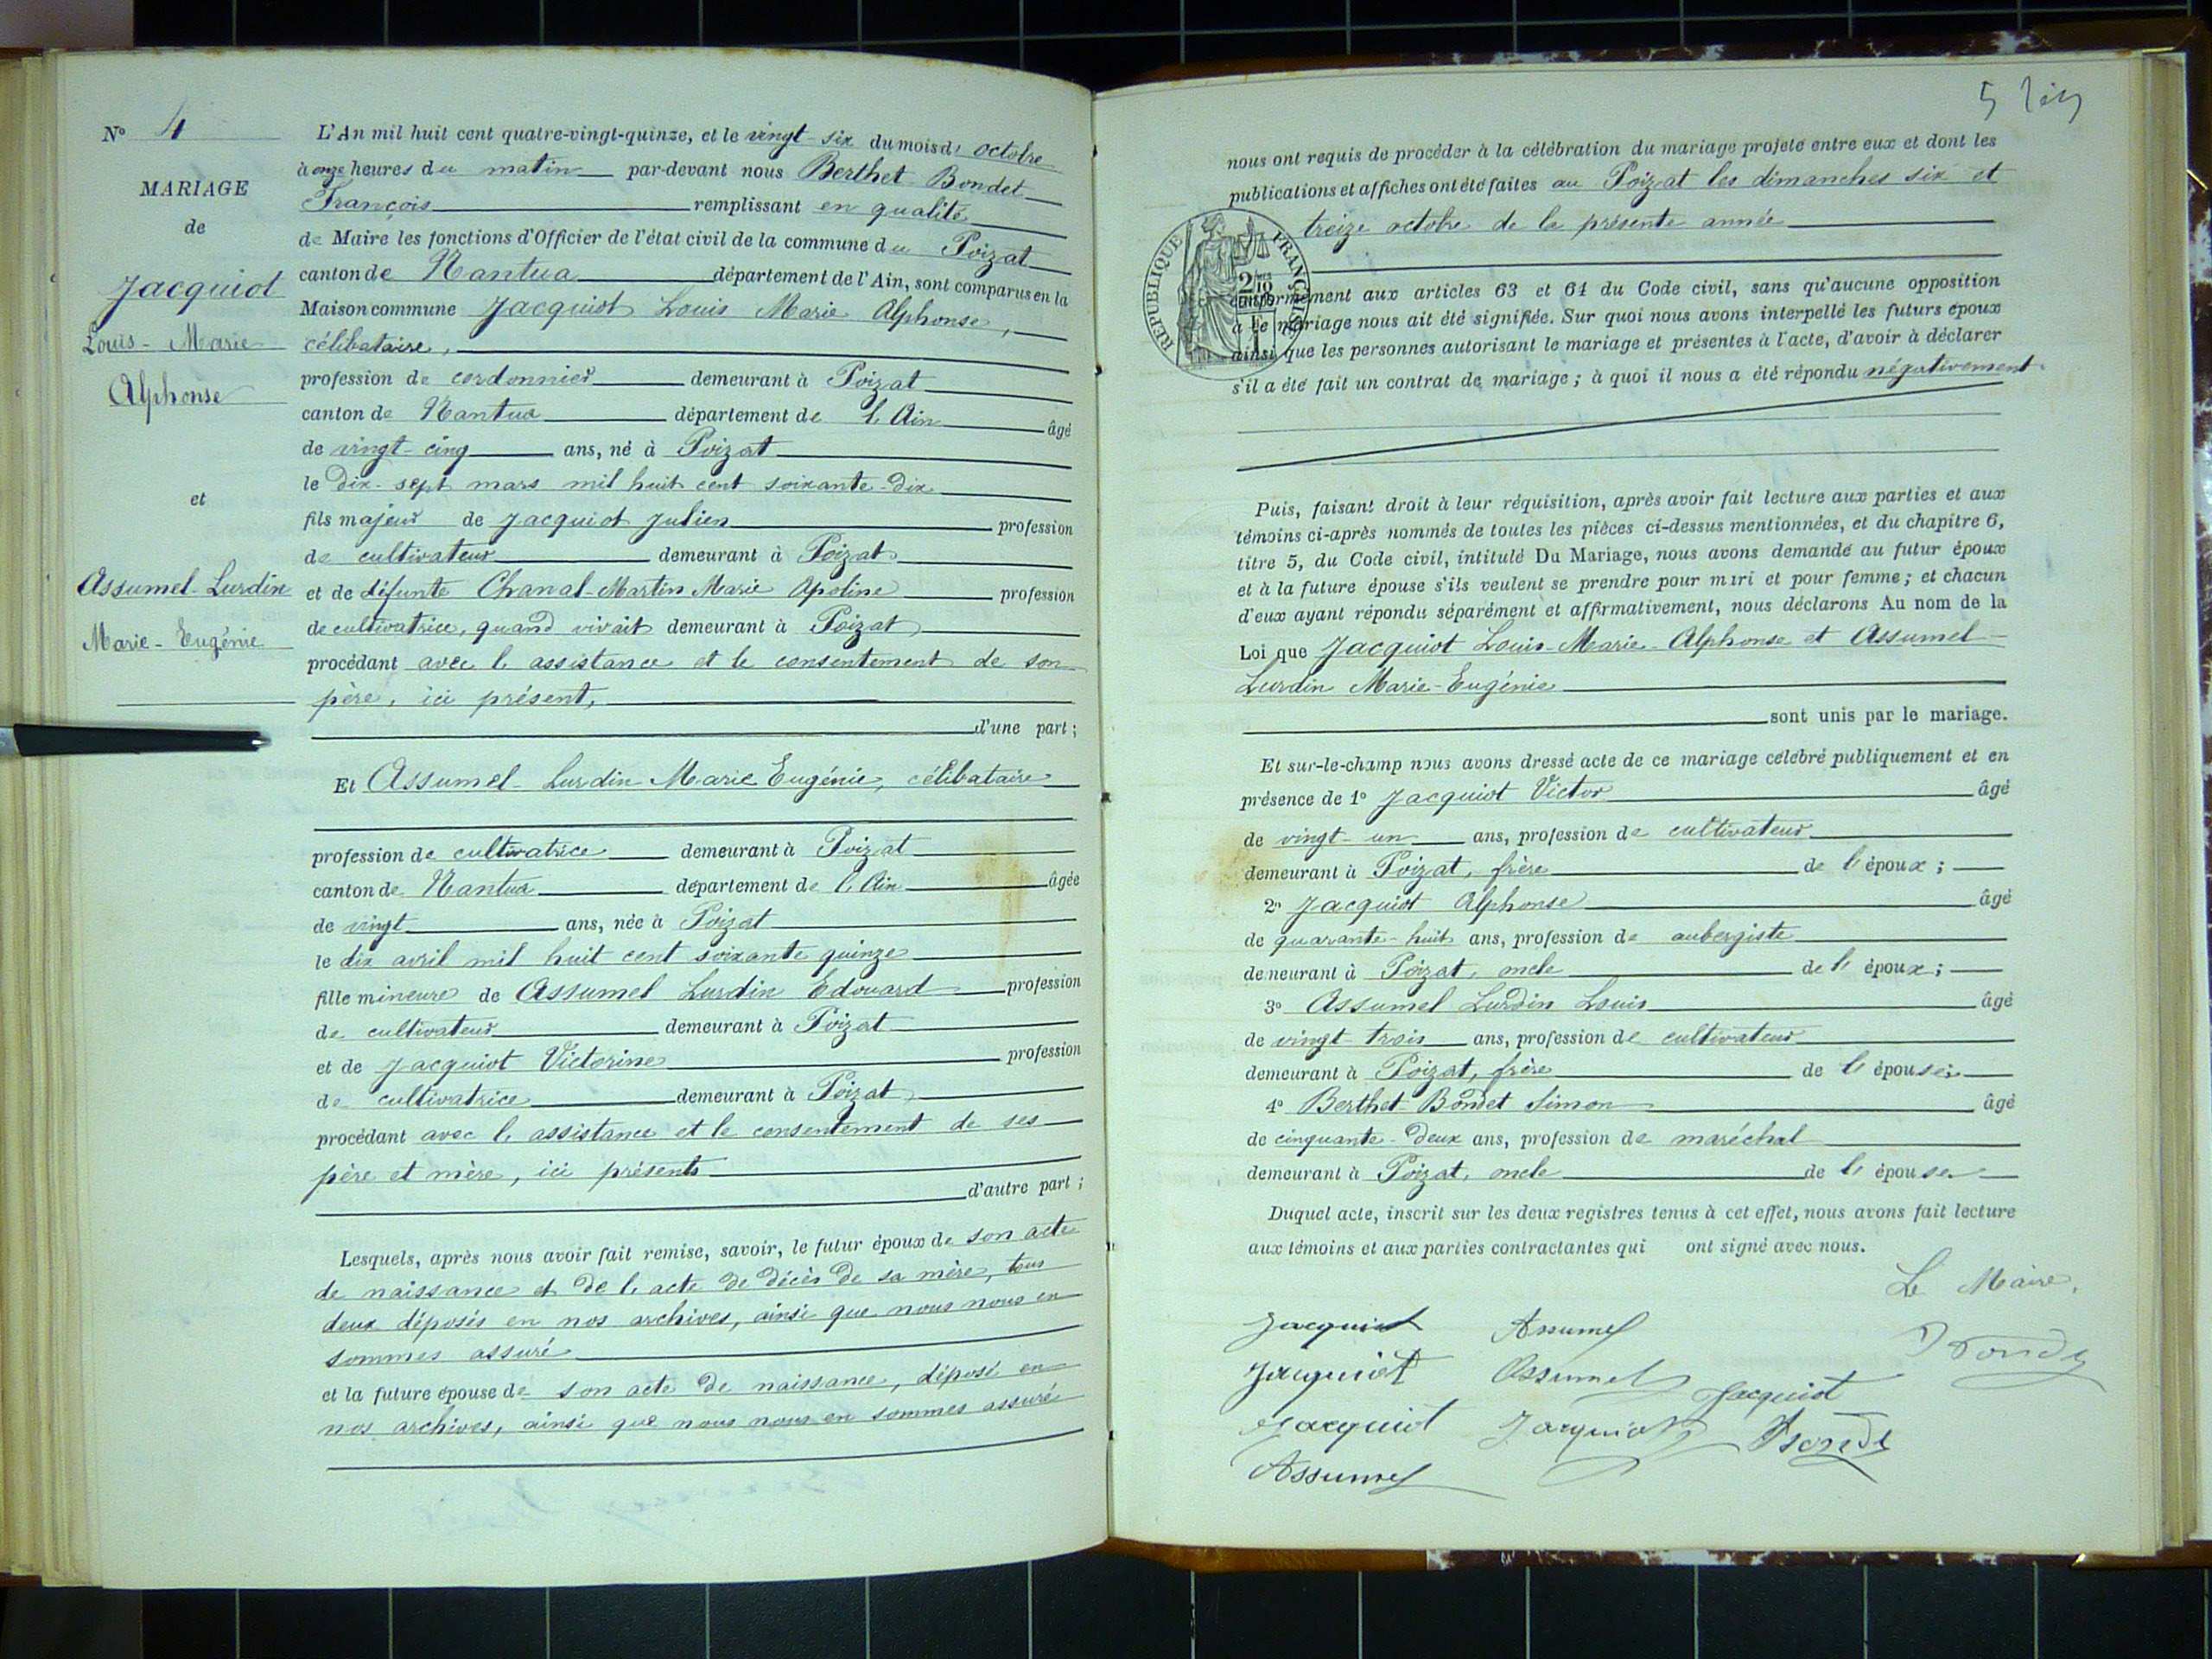 N° 4
MARIAGE
de
Jacquiot
Louis-Marie
Alphonse
et
Assumel-Lurdin
Marie-Eugénie
L'An mil huit cent quatre-vingt-quinze, et le vingt-six du mois d' octobre
à onze heures du matin par-devant nous Berthet-Bondet
François remplissant en qualité
de Maire les fonctions d'Officier de l'état civil de la commune du Poizat
canton de Nantua département de l'Ain, sont comparus en la
Maison commune Jacquiot Louis Marie Alphonse,
célibataire,
profession de cordonnier demeurant à Poizat
canton de Nantua département de l'Ain âgé
de vingt-cinq ans, né à Poizat
le dix-sept mars mil huit cent soixante-dix
fils majeur de Jacquiot Julien profession
de cultivateur demeurant à Poizat
et de défunte Chanal-Martin Marie Apoline profession
de cultivatrice, quand vivait demeurant à Poizat
procédant avec l'assistance et le consentement de son
père, ici présent,
d'une part;
Et Assumel-Lurdin Marie Eugénie, célibataire
profession de cultivatrice demeurant à Poizat
canton de Nantua département de l'Ain âgée
de vingt ans, née à Poizat
le dix avril mil huit cent soixante quinze
fille mineure de Assumel Lurdin Edouard profession
de cultivateur demeurant à Poizat
et de Jacquiot Victorine profession
de cultivatrice demeurant à Poizat
procédant avec l'assistance et le consentement de ses
père et mère, ici présents
d'autre part;
Lesquels, après nous avoir fait remise, savoir, le futur époux de son acte
de naissance et de l'acte de décès de sa mère, tous
deux déposés en nos archives, ainsi que nous nous en
sommes assuré
et la future épouse de son acte de naissance, déposé en
nos archives, ainsi que nous nous en sommes assuré
5
nous ont requis de procéder à la célébration du mariage projeté entre eux et dont les
publications et affiches ont été faites au Poizat les dimanches six et
treize octobre de la présente année
RÉPUBLIQUE FRANÇAISE
conformément aux articles 63 et 64 du Code civil, sans qu'aucune opposition
à ce mariage nous ait été signifiée. Sur quoi nous avons interpellé les futurs époux
ainsi que les personnes autorisant le mariage et présentes à l'acte, d'avoir à déclarer
s'il a été fait un contrat de mariage; à quoi il nous a été répondu négativement
Puis, faisant droit à leur réquisition, après avoir fait lecture aux parties et aux
témoins ci-après nommés de toutes les pièces ci-dessus mentionnées, et du chapitre 6,
titre 5, du Code civil, intitulé Du Mariage, nous avons demandé au futur époux
et à la future épouse s'ils veulent se prendre pour mari et pour femme; et chacun
d'eux ayant répondu séparément et affirmativement, nous déclarons Au nom de la
Loi que Jacquiot Louis-Marie-Alphonse et Assumel-
Lurdin Marie-Eugénie
sont unis par le mariage.
Et sur-le-champ nous avons dressé acte de ce mariage célébré publiquement et en
présence de 1° Jacquiot Victor âgé
de vingt-un ans, profession de cultivateur
demeurant à Poizat, frère de l'époux;
2° Jacquiot Alphonse âgé
de quarante-huit ans, profession de aubergiste
demeurant à Poizat, oncle de l'époux;
3° Assumel Lurdin Louis âgé
de vingt-trois ans, profession de cultivateur
demeurant à Poizat, frère de l'épouse;
4° Berthet-Bondet Simon âgé
de cinquante-deux ans, profession de maréchal
demeurant à Poizat, oncle de l'épouse
Duquel acte, inscrit sur les deux registres tenus à cet effet, nous avons fait lecture
aux témoins et aux parties contractantes qui ont signé avec nous.
Le Maire,
Jacquiot Assumel
Jacquiot Assumel Jacquiot
Jacquiot Jacquiot
Assumel